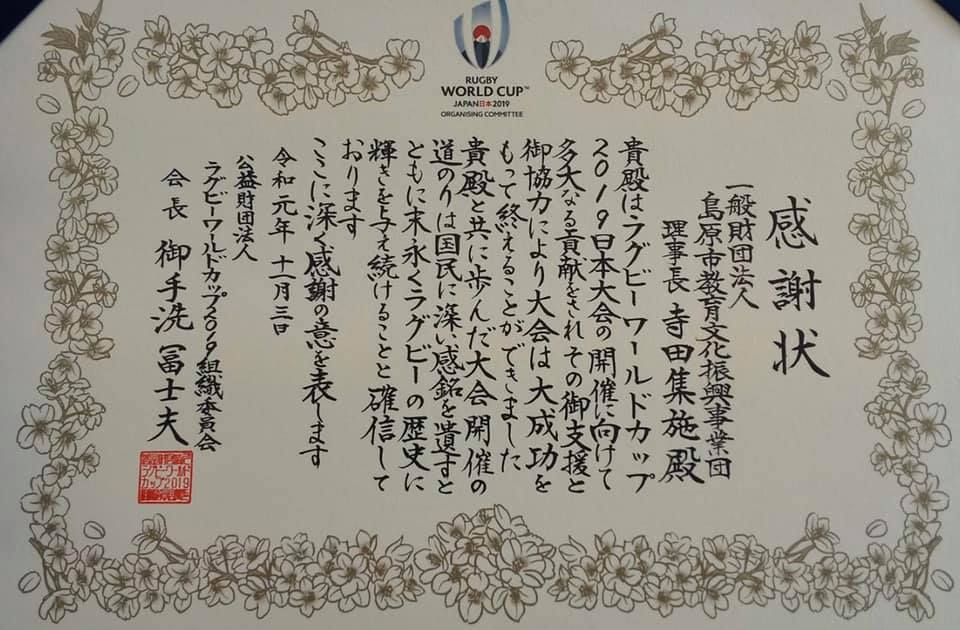 RUGBY
WORLD CUP™
JAPAN日本2019
ORGANISING COMMITTEE
感謝状
一般財団法人
島原市教育文化振興事業団
理事長 寺田集施殿
貴殿はラグビーワールドカップ
2019日本大会の開催に向けて
多大なる貢献をされその御支援と
御協力により大会は大成功を
もって終えることができました
貴殿と共に歩んだ大会開催の
道のりは国民に深い感銘を遺すと
ともに末永くラグビーの歴史に
輝きを与え続けることと確信して
おります
ここに深く感謝の意を表します
令和元年 十一月三日
公益財団法人
ラグビーワールドカップ2019組織委員会
会長 御手洗冨士夫
ラグビーワールド
カップ2019